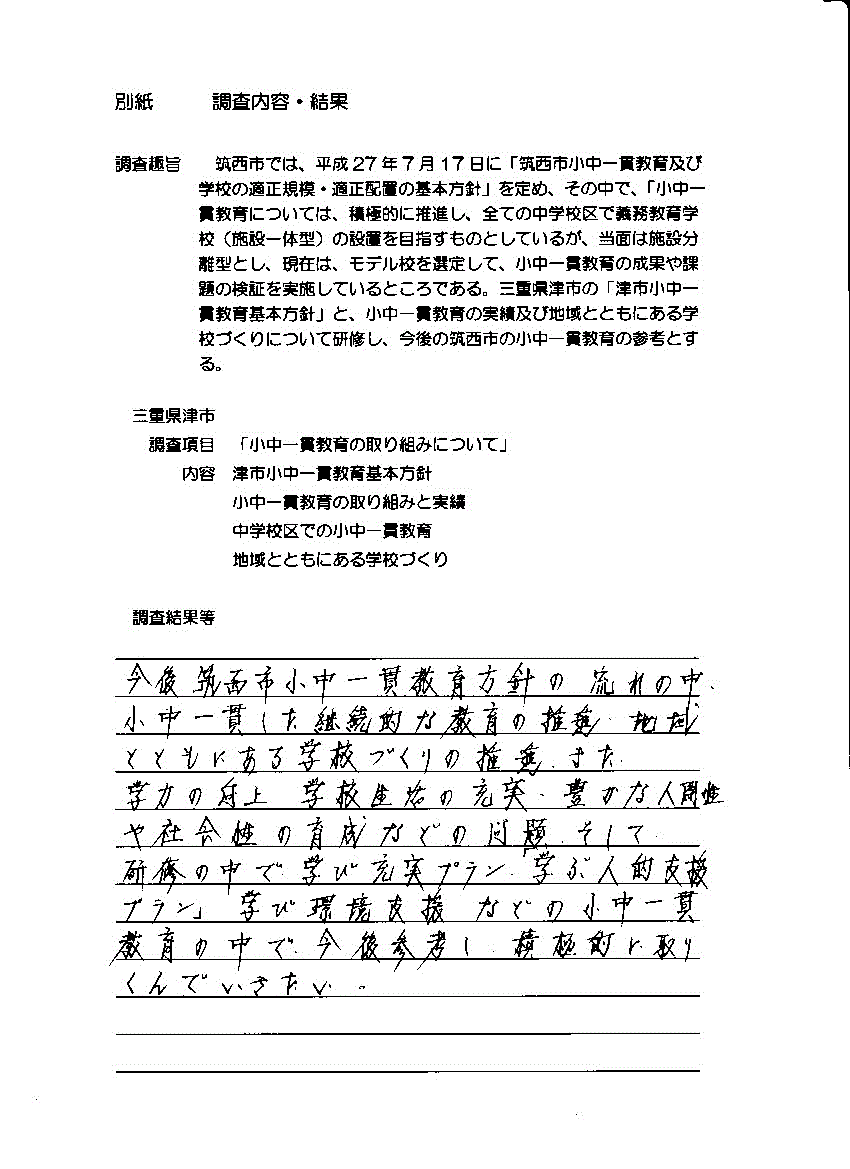 別紙　調査内容・結果
調査趣旨　筑西市では、平成27年7月17日に「筑西市小中一貫教育及び
学校の適正規模・適正配置の基本方針」を定め、その中で、「小中一
貫教育については、積極的に推進し、全ての中学校区で義務教育学
校（施設一体型）の設置を目指すものとしているが、当面は施設分
離型とし、現在は、モデル校を選定して、小中一貫教育の成果や課
題の検証を実施しているところである。三重県津市の「津市小中一
貫教育基本方針」と、小中一貫教育の実績及び地域とともにある学
校づくりについて研修し、今後の筑西市の小中一貫教育の参考とす
る。
三重県津市
調査項目　「小中一貫教育の取り組みについて」
内容　津市小中一貫教育基本方針
小中一貫教育の取り組みと実績
中学校区での小中一貫教育
地域とともにある学校づくり
調査結果等
今後筑西市小中一貫教育方針の流れの中、
小中一貫した継続的な教育の推進、地域
とともにある学校づくりの推進、また
学力の向上　学校生活の充実、豊かな人間性
や社会性の育成などの問題、そして
研修の中で学び充実プラン、「学ぶ人的支援
プラン」学び環境支援などの小中一貫
教育の中で、今後参考し、積極的に取り
くんでいきたい。